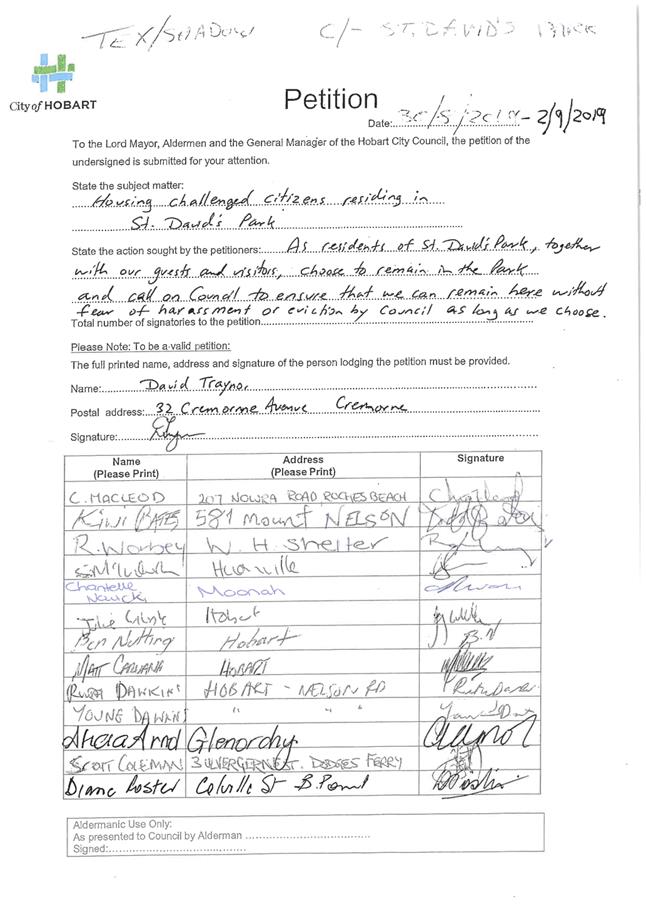 TEX/SHADOW C/- ST. DAVID'S PARK
City of HOBART
Petition
Date: 30/8/2019 - 2/9/2019
To the Lord Mayor, Aldermen and the General Manager of the Hobart City Council, the petition of the
undersigned is submitted for your attention.
State the subject matter:
Housing challenged citizens residing in
St. David's Park
State the action sought by the petitioners: As residents of St. David's Park, together
with our guests and visitors, choose to remain in the Park
and call on Council to ensure that we can remain here without
fear of harassment or eviction by Council as long as we choose.
Total number of signatories to the petition
Please Note: To be a valid petition:
The full printed name, address and signature of the person lodging the petition must be provided.
Name: David Traynor
Postal address: 32 Cremorne Avenue Cremorne
Signature:
Name (Please Print) Address (Please Print) Signature
C. MACLEOD 207 NOWRA ROAD ROCHES BEACH
KIWI BATES 581 Mount NELSON
R. Worbey W. H. Shelter
Huonville
Chantelle Moonah
Julie Hobart
Ben Nutting Hobart B.N
MATT CARUANA HOBART
RUTH DAWKINS HOBART - NELSON RD
YOUNG DAWKINS " " "
Glenorchy
SCOTT COLEMAN DODGES FERRY
Diane Roster Colville St
Aldermanic Use Only:
As presented to Council by Alderman
Signed: